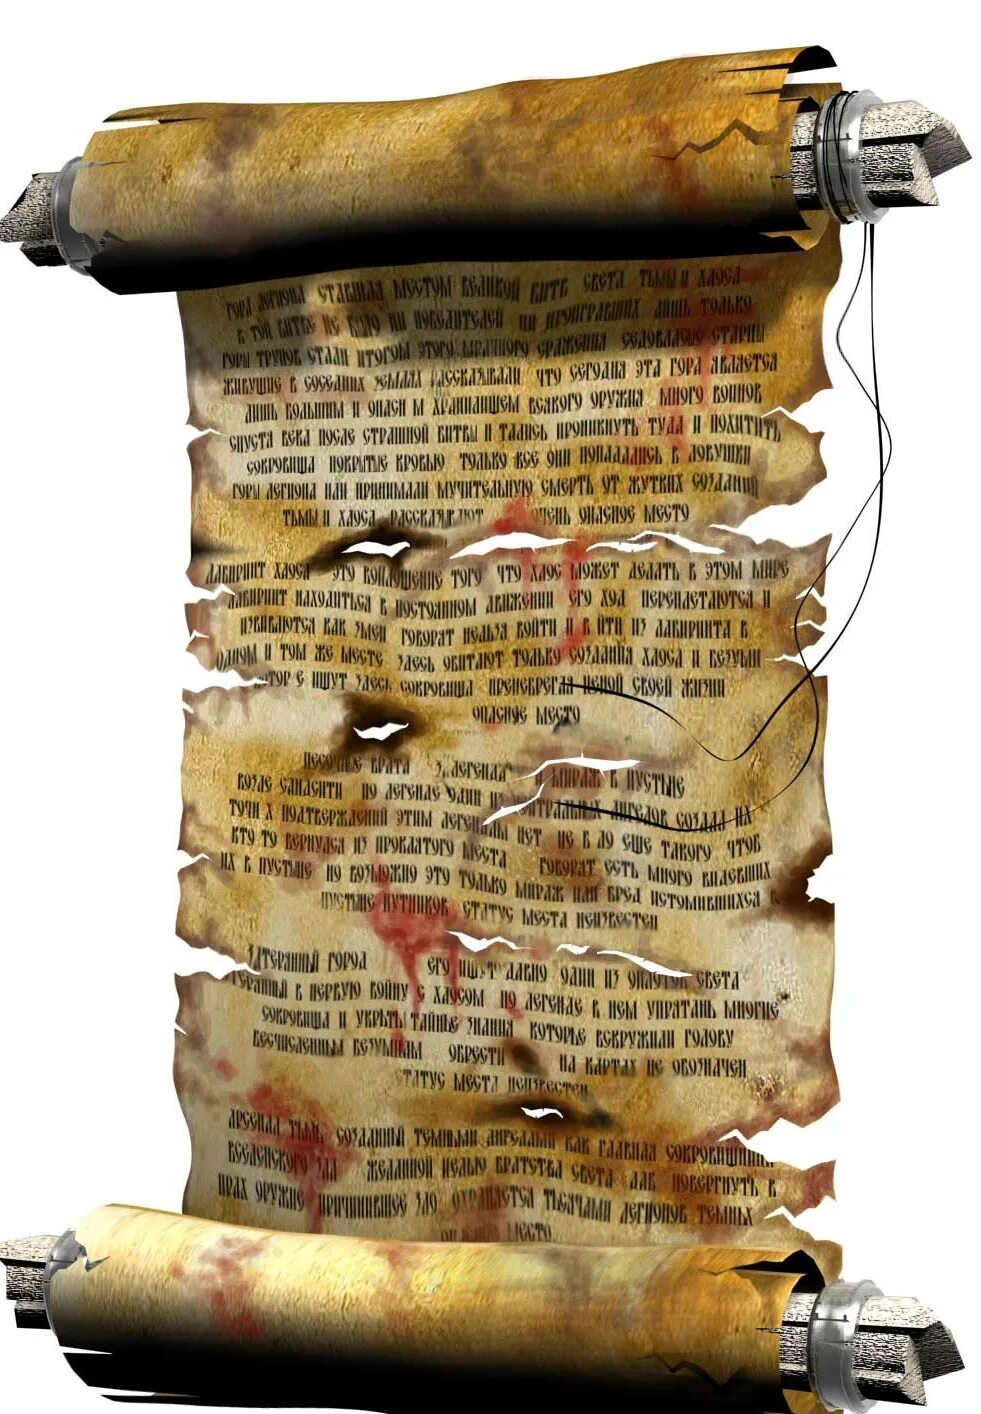 ГОРА ЛЕГИОНА СТАВШАЯ МЕСТОМ ВЕЛИКОЙ БИТВ СВЕТА ТЬМЫ И ХАОСА
В ТОЙ БИТВЕ НЕ БЫЛО НИ ПОБЕДИТЕЛЕЙ НИ ПРОИГРАВШИХ ЛИШЬ ТОЛЬКО
ГОРЫ ТРУПОВ СТАЛИ ИТОГОМ ЭТОГО СРАЖЕНИЯ СЕДОВЛАСЫЕ СТАРЦЫ
ЖИВУЩИЕ В СОСЕДНИХ ЗЕМЛЯХ РАССКАЗЫВАЛИ ЧТО СЕГОДНЯ ЭТА ГОРА ЯВЛЯЕТСЯ
ЛИШЬ БОЛЬШИМ И ОПАСН М ХРАНИЛИЩЕМ ВСЯКОГО ОРУЖИЯ МНОГО ВОИНОВ
СПУСТЯ ВЕКА ПОСЛЕ СТРАШНОЙ БИТВЫ П ТАЛИСЬ ПРОНИКНУТЬ ТУДА И ПОХИТИТЬ
СОКРОВИЩА ПОКРЫТЫЕ КРОВЬЮ ТОЛЬКО ВСЕ ОНИ ПОПАДАЛИСЬ В ЛОВУШКИ
ГОРЫ ЛЕГИОНА ИЛИ ПРИНИМАЛИ МУЧИТЕЛЬНУЮ СМЕРТЬ ОТ ЖУТКИХ СОЗДАНИЙ
ТЬМЫ И ХАОСА РАССКАЗЫВАЮТ ОЧЕНЬ ОПАСНОЕ МЕСТО
ЛАБИРИНТ ХАОСА ЭТО ВОПЛОЩЕНИЕ ТОГО ЧТО ХАОС МОЖЕТ ДЕЛАТЬ В ЭТОМ МИРЕ
ЛАБИРИНТ НАХОДИТЬСЯ В ПОСТОЯННОМ ДВИЖЕНИИ ЕГО ХОД ПЕРЕПЛЕТАЮТСЯ И
ИЗВИВАЮТСЯ КАК ЗМЕИ ГОВОРЯТ НЕЛЬЗЯ ВОЙТИ И В ЙТИ ИЗ ЛАБИРИНТА В
ОДНОМ И ТОМ ЖЕ МЕСТЕ ЗДЕСЬ ОБИТАЮТ ТОЛЬКО СОЗДАНИЯ ХАОСА И БЕЗУМЦ
ТОР Е ИЩУТ ЗДЕСЬ СОКРОВИЩА ПРЕНЕБРЕГАЯ ЦЕНОЙ СВОЕЙ ЖИЗНИ
ОПАСНОЕ МЕСТО
ПЕСОЧНЫЕ ВРАТА ЛЕГЕНДА И МИРАЖ В ПУСТЫНЕ
ВОЗЛЕ САНДЕНТИ ПО ЛЕГЕНДЕ ОДИН ИЗ ЦЕНТРАЛЬНЫХ АНГЕЛОВ СОЗДАЛ ИХ
ТОЧН Х ПОДТВЕРЖДЕНИЙ ЭТИМ ЛЕГЕНДАМ НЕТ НЕ Б ЛО ЕЩЕ ТАКОГО ЧТОБ
КТО ТО ВЕРНУЛСЯ ИЗ ПРОКЛЯТОГО МЕСТА ГОВОРЯТ ЕСТЬ МНОГО ВИДЕВШИХ
ИХ В ПУСТЫНЕ НО ВОЗМОЖНО ЭТО ТОЛЬКО МИРАЖ ИЛИ БРЕД ИСТОМИВШИХСЯ В
ПУСТЫНЕ ПУТНИКОВ СТАТУС МЕСТА НЕИЗВЕСТЕН
ЗАТЕРЯННЫЙ ГОРОД ЕГО ИЩУТ ДАВНО ОДИН ИЗ ОПЛОТОВ СВЕТА
ТЕРЯННЫЙ В ПЕРВУЮ ВОЙНУ С ХАОСОМ ПО ЛЕГЕНДЕ В НЕМ УПРЯТАНЫ МНОГИЕ
СОКРОВИЩА И УКРЫТЫ ТАЙНЫЕ ЗНАНИЯ КОТОРЫЕ ВСКРУЖИЛИ ГОЛОВУ
БЕСЧИСЛЕННЫМ БЕЗУМЦАМ ОБРЕСТИ НА КАРТАХ НЕ ОБОЗНАЧЕН
СТАТУС МЕСТА НЕИЗВЕСТЕН
АРСЕНАЛ ТЬМЫ СОЗДАННЫЙ ТЕМНЫМИ АНГЕЛАМИ КАК ГЛАВНАЯ СОКРОВИЩНИЦА
ВСЕЛЕНСКОГО ЗЛА ЖЕЛАННОЙ ЦЕЛЬЮ БРАТСТВА СВЕТА ДАБ ПОВЕРГНУТЬ В
ПРАХ ОРУЖИЕ ПРИЧИНИВШЕЕ ЗЛО ОХРАНЯЕТСЯ ТЫСЯЧАМИ ЛЕГИОНОВ ТЕМНЫХ
МЕСТО